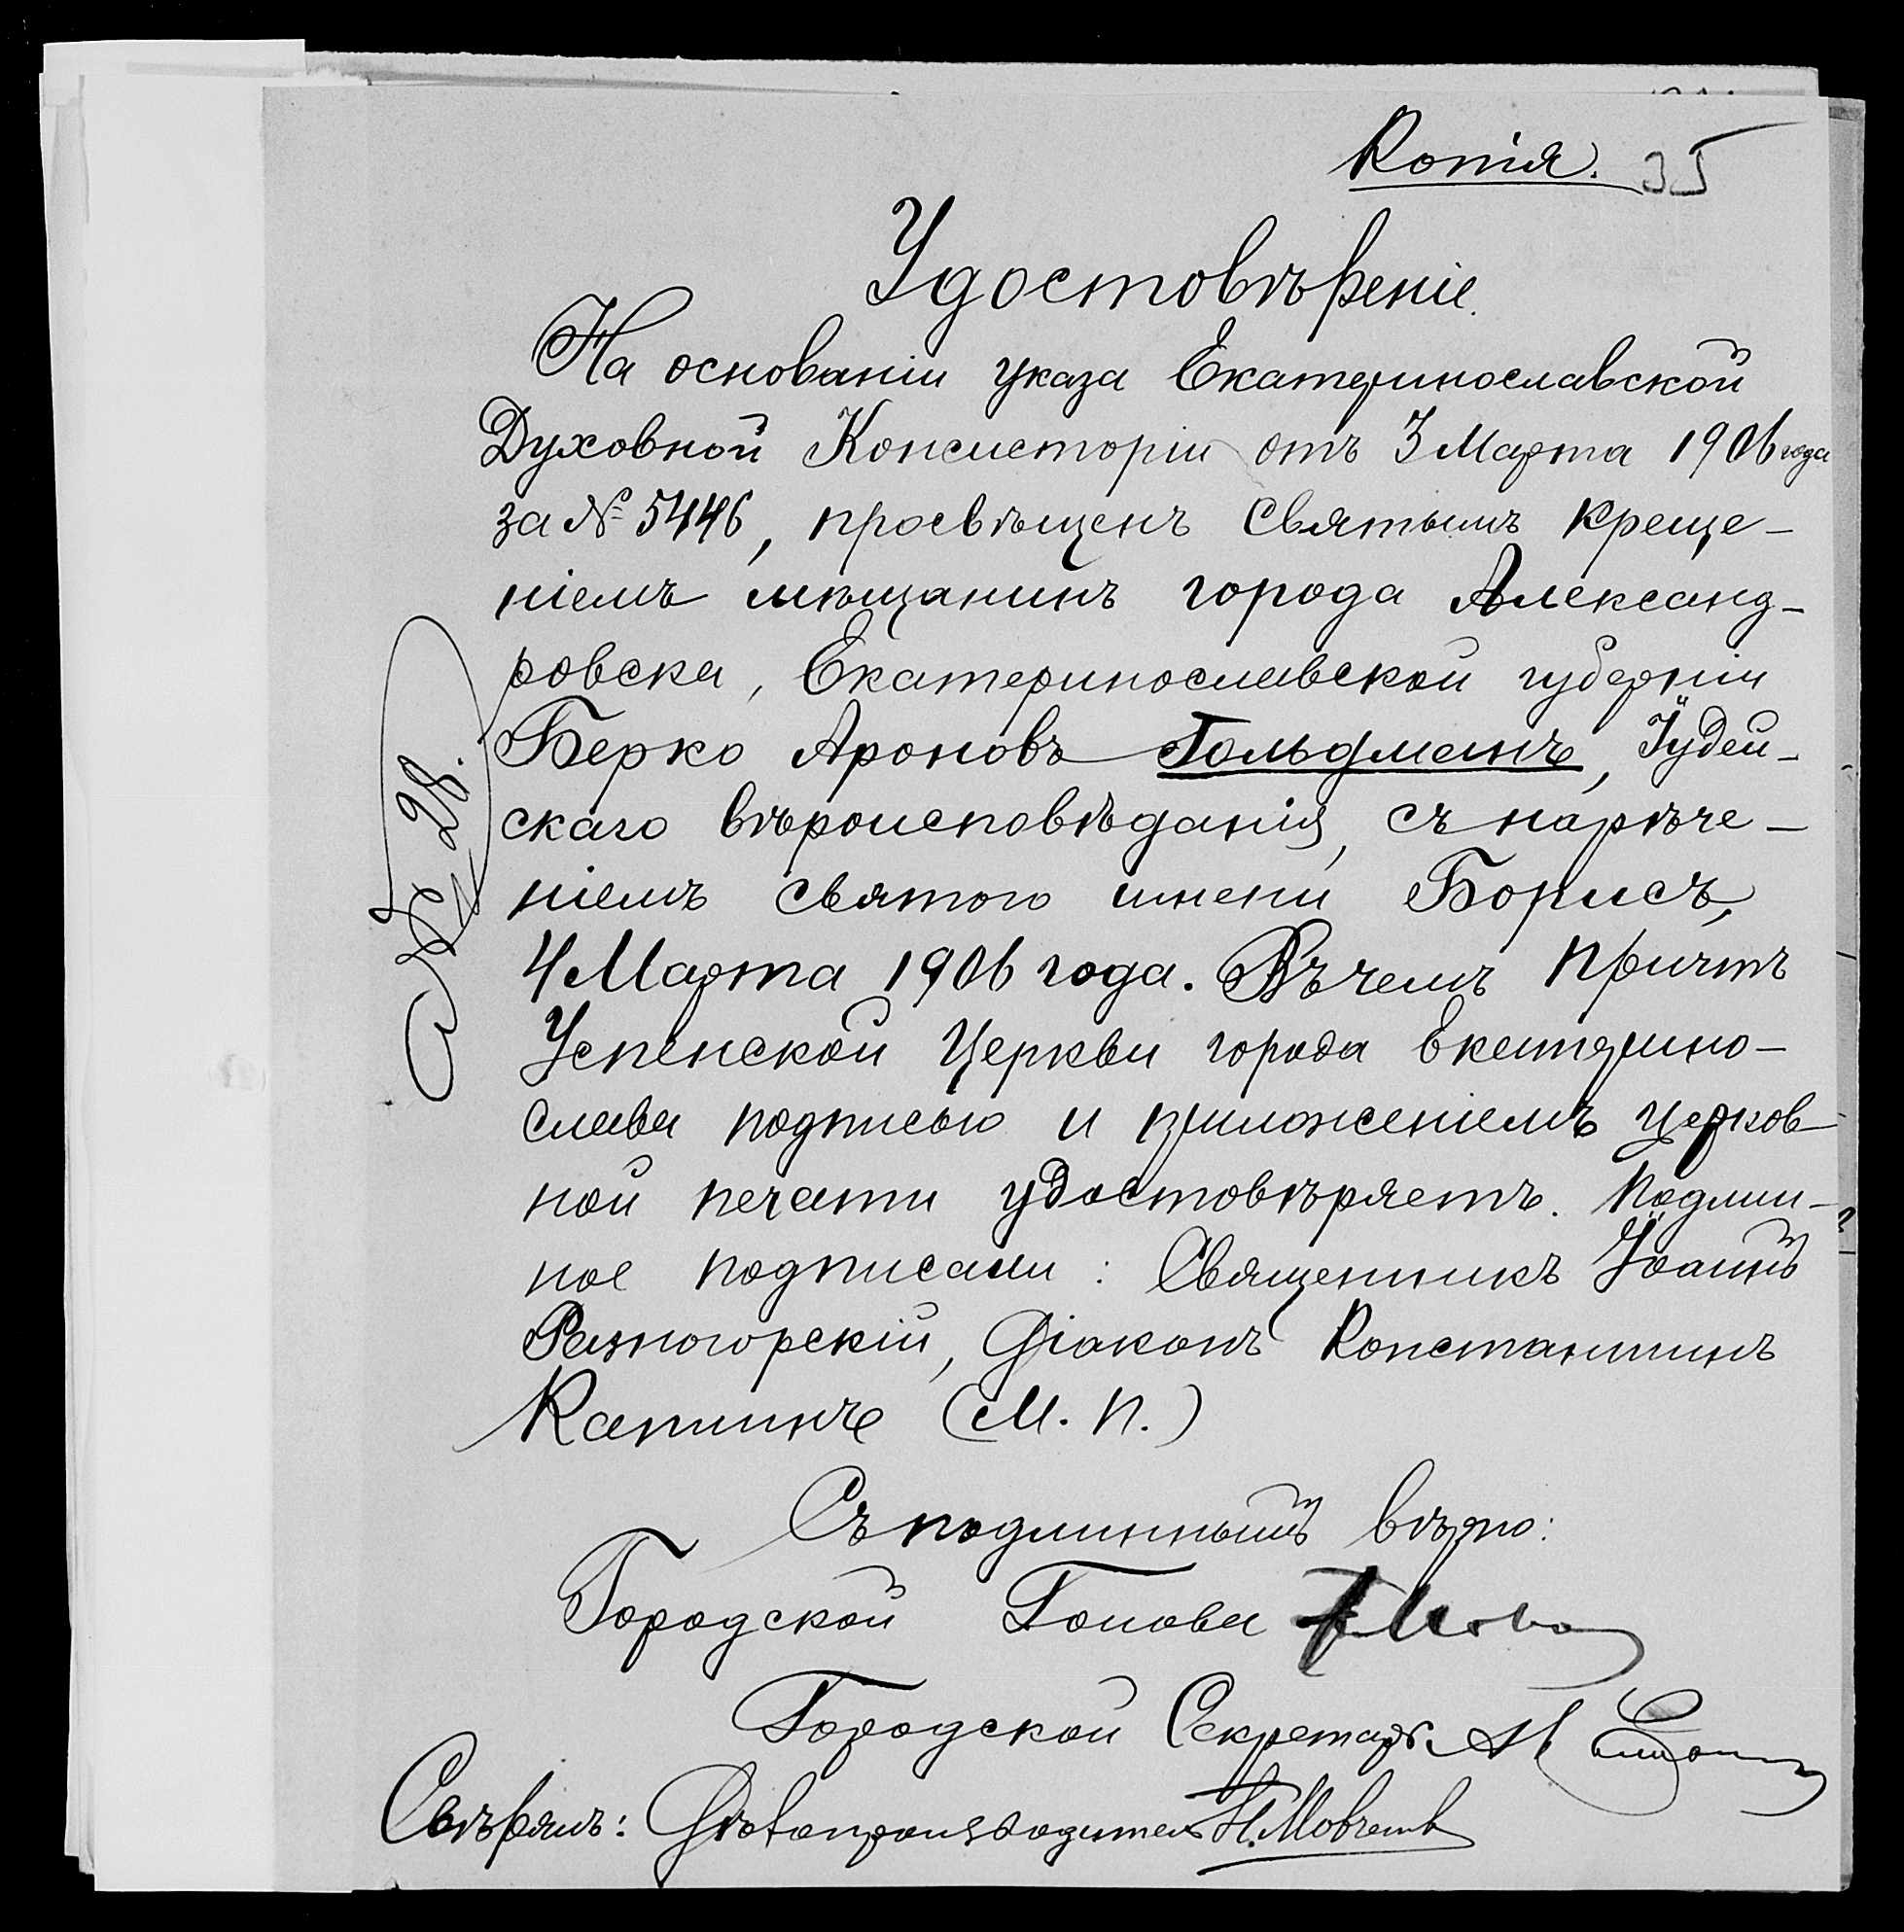 Копія. 35
Удостовѣреніе.
На основаніи указа Екатеринославской
Духовной Консисторіи отъ 3 Марта 1906 года
за № 5446, просвѣщенъ Святымъ креще-
ніемъ мѣщанинъ города Александ-
ровска, Екатеринославской губерніи
Берко Ароновъ Гольдманъ, Іудей-
скаго вѣроисповѣданія, съ нарѣче-
ніемъ святого имени Борисъ,
4 Марта 1906 года. Въ чемъ причтъ
Успенской Церкви города Екатерино-
слава подписью и приложеніемъ церков-
ной печати удостовѣряетъ. Подлин-
ное подписали: Священникъ Іоаннъ
Разногорскій, Діаконъ Константинъ
Капинъ (М. П.)
Съ подлиннымъ вѣрно:
Городской Голова
Городской Секретарь
Свѣрялъ: Дѣлопроизводитель Н. Мовчан
№ 28.